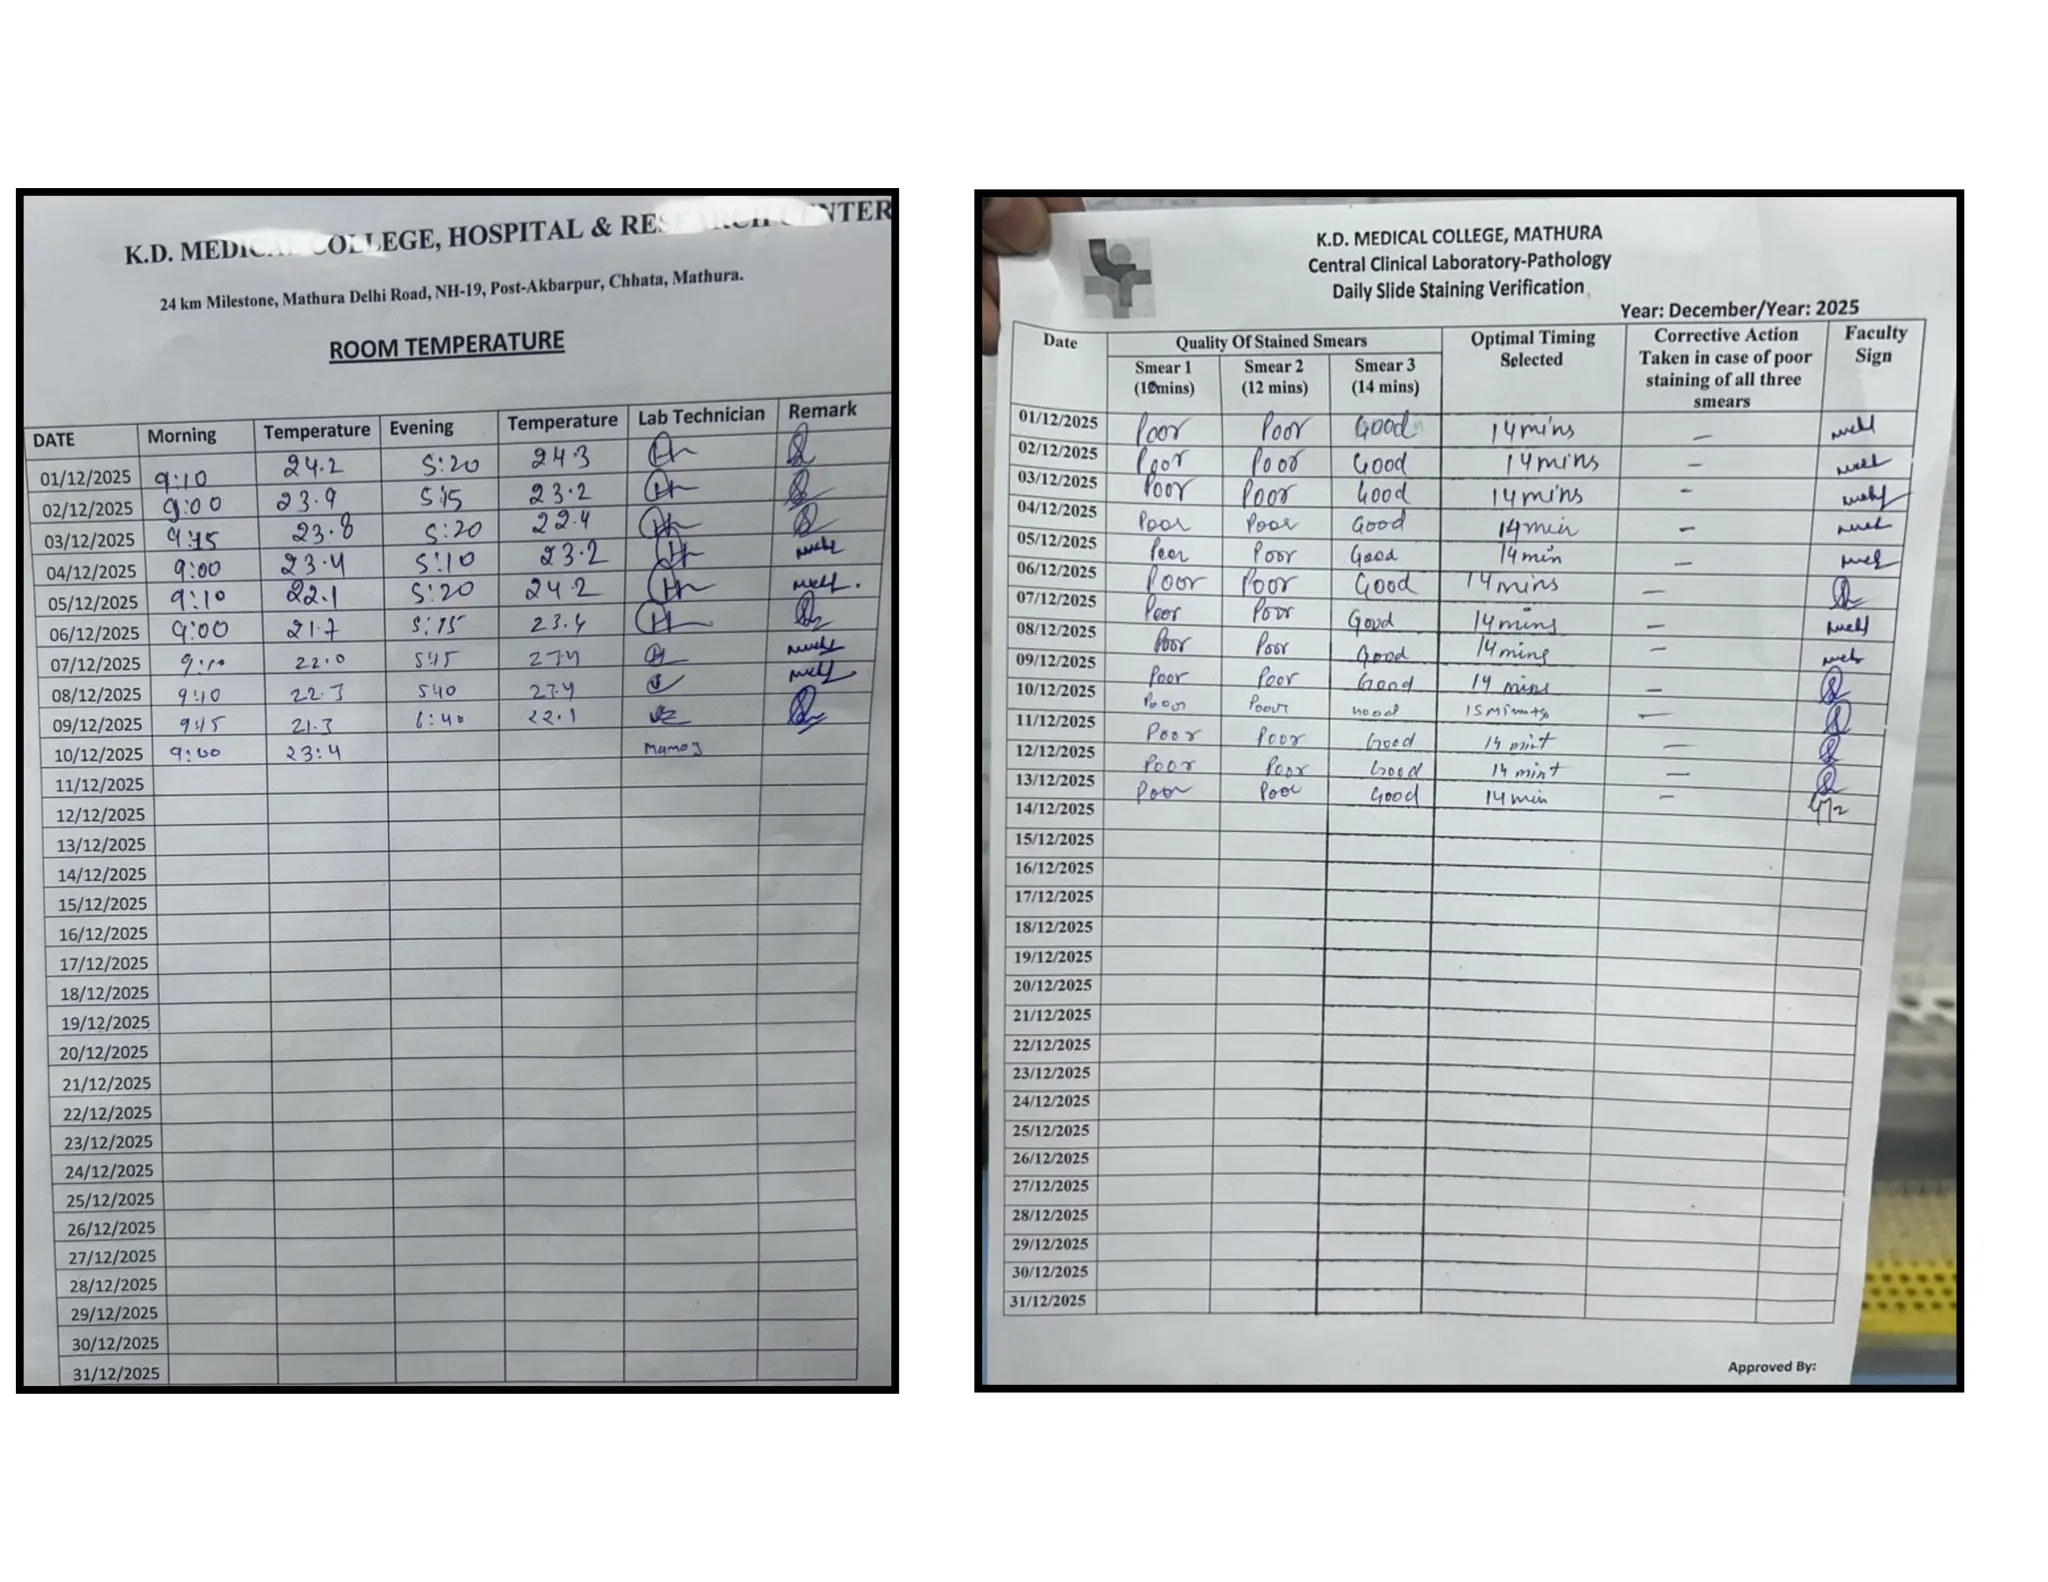 K.D. MEDICAL COLLEGE, HOSPITAL & RESEARCH CENTER
24 km Milestone, Mathura Delhi Road, NH-19, Post-Akbarpur, Chhata, Mathura.
ROOM TEMPERATURE
DATE Morning Temperature Evening Temperature Lab Technician Remark
01/12/2025 9:10 24.2 5:20 24.3
02/12/2025 9:00 23.9 5:15 23.2
03/12/2025 9:15 23.8 5:20 22.4
04/12/2025 9:00 23.4 5:10 23.2
05/12/2025 9:10 22.1 5:20 24.2
06/12/2025 9:00 21.7 5:15 23.4
07/12/2025 9:10 22.0 5:15
08/12/2025 9:10 22.3 5:40
09/12/2025 9:15 21.3 6:40 22.1
10/12/2025 9:00 23:4
11/12/2025
12/12/2025
13/12/2025
14/12/2025
15/12/2025
16/12/2025
17/12/2025
18/12/2025
19/12/2025
20/12/2025
21/12/2025
22/12/2025
23/12/2025
24/12/2025
25/12/2025
26/12/2025
27/12/2025
28/12/2025
29/12/2025
30/12/2025
31/12/2025
K.D. MEDICAL COLLEGE, MATHURA
Central Clinical Laboratory-Pathology
Daily Slide Staining Verification
Year: December/Year: 2025
Date Quality Of Stained Smears Optimal Timing Selected Corrective Action Taken in case of poor staining of all three smears Faculty Sign
Smear 1 (10mins) Smear 2 (12 mins) Smear 3 (14 mins)
01/12/2025 Poor Poor Good 14mins –
02/12/2025 Poor Poor Good 14mins –
03/12/2025 Poor Poor Good 14mins –
04/12/2025 Poor Poor Good 14min –
05/12/2025 Poor Poor Good 14min –
06/12/2025 Poor Poor Good 14mins –
07/12/2025 Poor Poor Good 14mins –
08/12/2025 Poor Poor Good 14mins –
09/12/2025 Poor Poor Good 14 mins –
10/12/2025 Poor Poor Good 15 minuts –
11/12/2025 Poor Poor Good 14 mint –
12/12/2025 Poor Poor Good 14 mint –
13/12/2025 Poor Poor Good 14min –
14/12/2025
15/12/2025
16/12/2025
17/12/2025
18/12/2025
19/12/2025
20/12/2025
21/12/2025
22/12/2025
23/12/2025
24/12/2025
25/12/2025
26/12/2025
27/12/2025
28/12/2025
29/12/2025
30/12/2025
31/12/2025
Approved By: